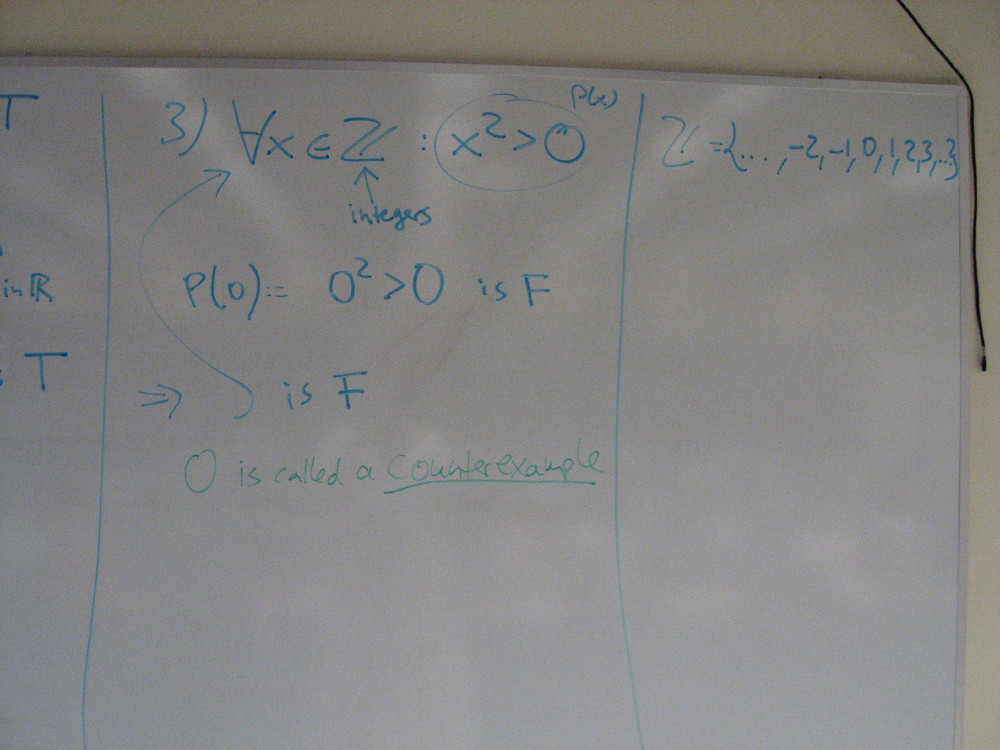 T
in ℝ
T
3) ∀x ∈ ℤ : x² > 0 P(x)
integers
P(0) := 0² > 0 is F
⇒ is F
0 is called a counterexample
ℤ = {..., -2, -1, 0, 1, 2, 3, ...}